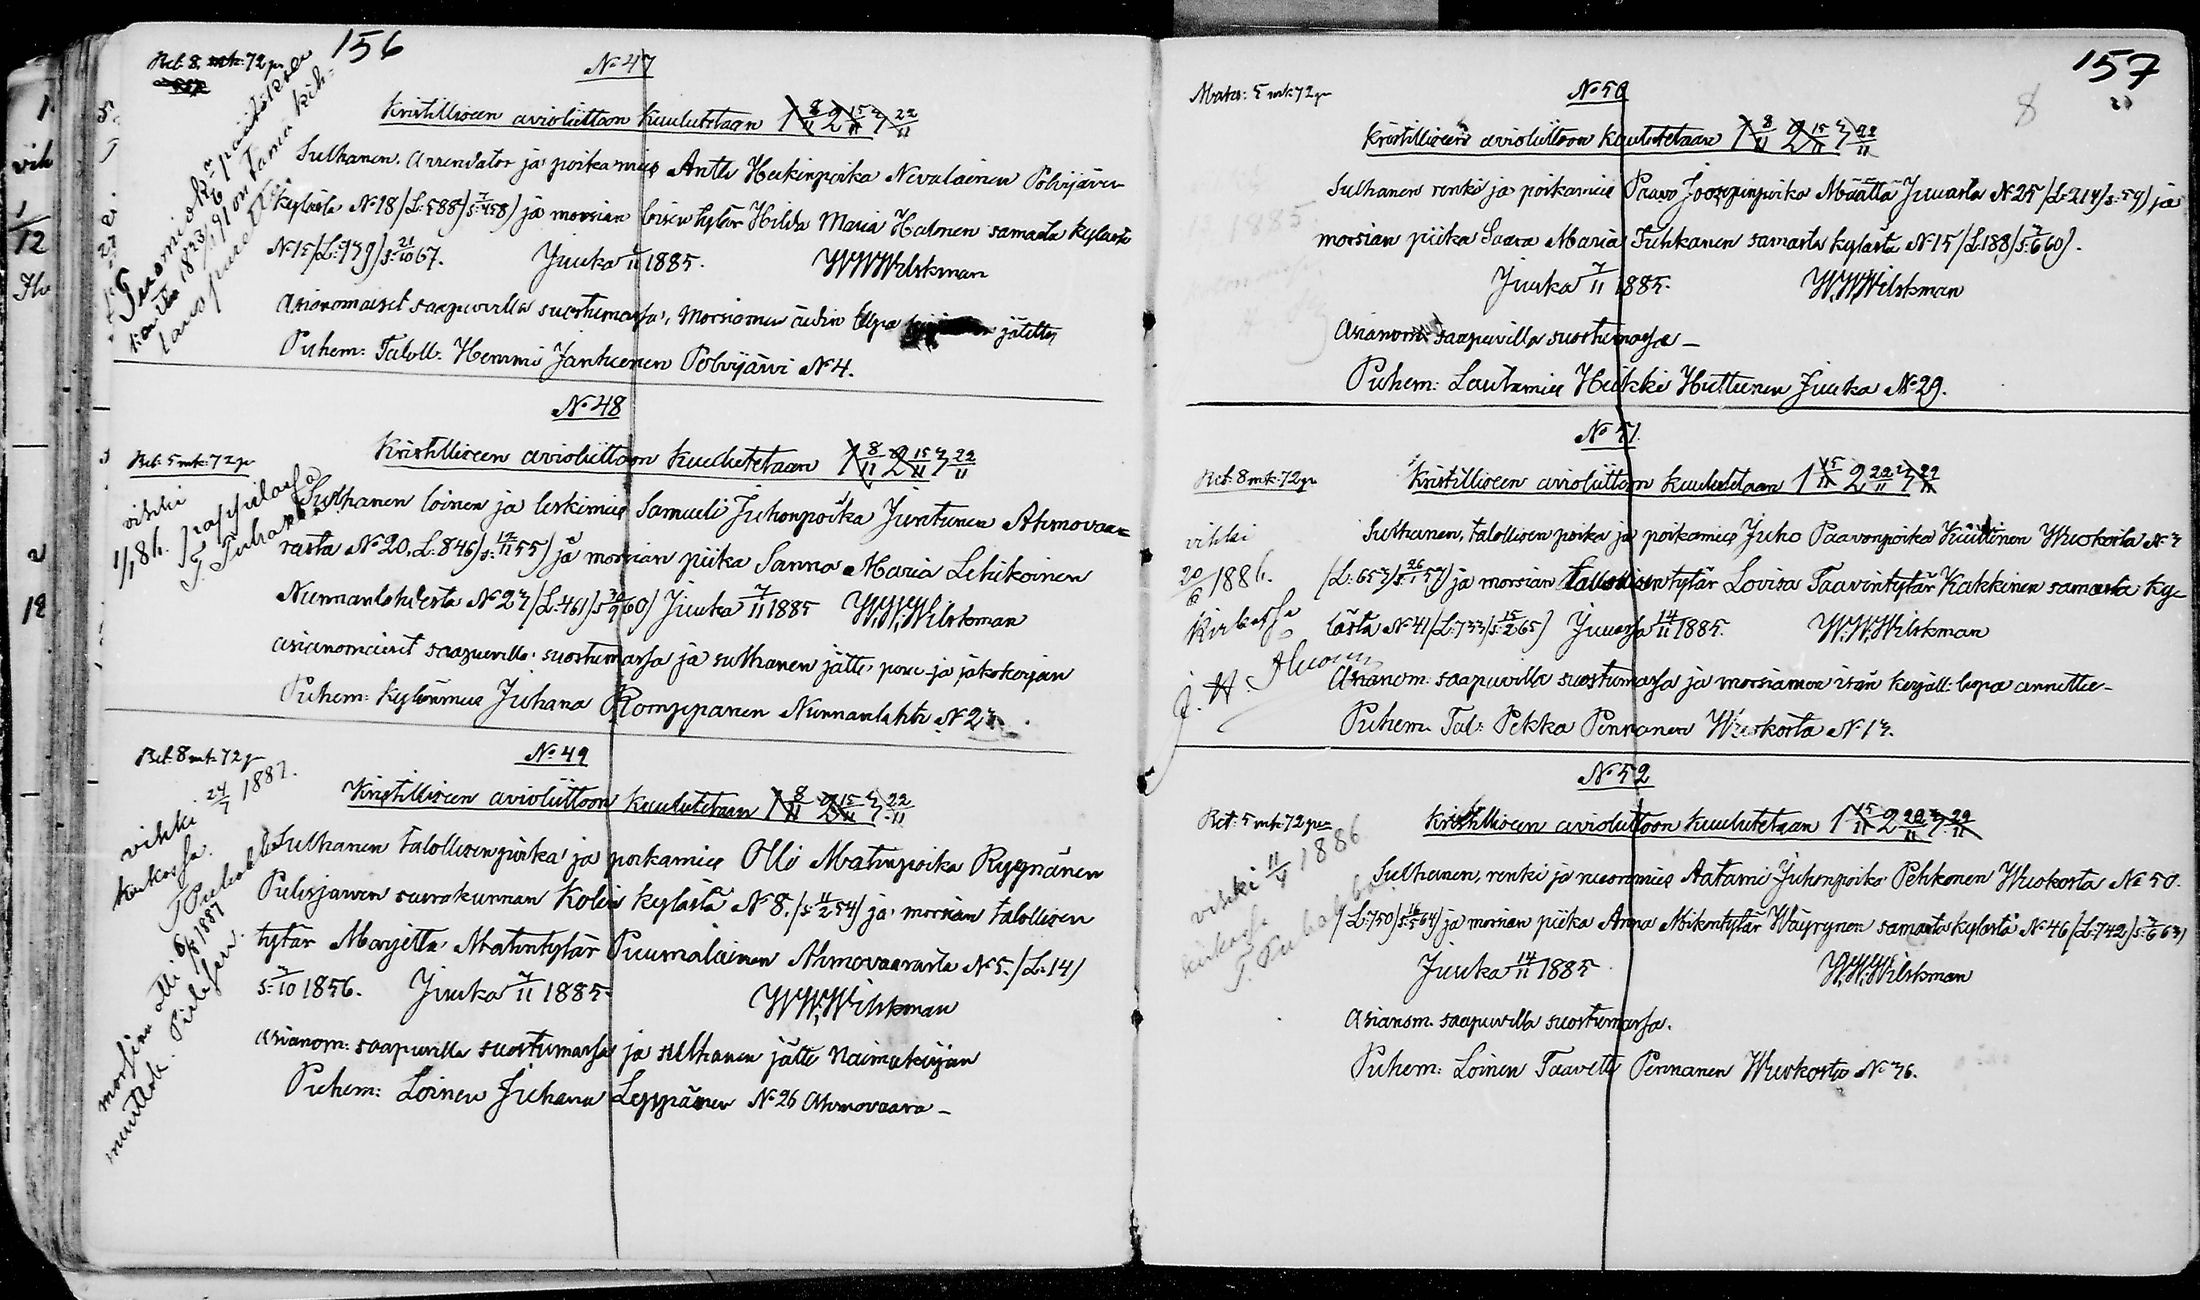 156
Bet. 8. mk. 72 p.
No 47
Kristilliseen avioliittoon kuulutetaan 1 8/11 2 15/11 3 22/11
Sulhanen. Arrendator ja poikamies Antti Heikinpoika Nevalainen Polvijärven
kylästä No 18 /L: 588/ s: 7/4 58) ja morsian loisen tytär Hilda Maria Halonen samasta kylästä
No 15 /L: 939/ s: 21/10 67. Juuka 7/11 1885. W.W.Wilskman
Asianomaiset saapuvilla suostumassa, morsiamen äidin lupa jätetty
Puhem: Taloll: Hemmi Jankuenen Polvijärvi No 4.
No 48
Bet. 5 mk. 72 p.
Kristilliseen avioliittoon kuulutetaan 1 8/11 2 15/11 3 22/11
vihki
1/1 86. pappilassa
Sulhanen loinen ja leskimies Samueli Juhonpoika Juntunen Ahmovaa=
rasta No 20. L: 846/ s: 12/11 55) ja morsian piika Sanna Maria Lehikoinen
Nunnanlahdesta No 23 /L: 461/ s 30/9 60) Juuka 7/11 1885 W.W.Wilskman
asianomaiset saapuvilla suostumassa ja sulhanen jätti peru- ja jakokirjan
Puhem: kylänmies Juhana Romppanen Nunnanlahti No 23.
Bet. 8 mk. 72 p.
No 49
vihki 24/7 1887.
kirkossa.
Kristilliseen avioliittoon kuulutetaan 1 8/11 2 15/11 3 22/11
Sulhanen talollisenpoika ja poikamies Olli Matinpoika Ryynänen
Pielisjärven seurakunnan Kolin kylästä No 8. /s 11/2 54/ ja morsian talollisen
tytär Marjetta Matintytär Puumalainen Ahmovaarasta No 5. /L: 14/
s: 7/10 1856. Juuka 7/11 1885. W.W.Wilskman
Asianom: saapuvilla suostumassa ja sulhanen jätti Naimakirjan
Puhem: Loinen Juhana Leppänen No 26 Ahmovaara -
157
8
Maks: 5 mk. 72 p
No 50
Kristilliseen avioliittoon kuulutetaan 1 8/11 2 15/11 3 22/11
Sulhanen renki ja poikamies Paavo Joosepinpoika Määttä Juuasta No 25 /L: 214/ s: 59) ja
morsian piika Saara Maria Tuhkanen samasta kylästä No 15 /L: 188/ s: 7/6 60).
Juuka 7/11 1885. W.W.Wilskman
Asianom: saapuvilla suostumassa -
Puhem: Lautamies Heikki Huttunen Juuka No 29.
No 51.
Bet. 8 mk. 72 p.
Kristilliseen avioliittoon kuulutetaan 1 15/11 2 22/11 3 29/11
vihki
20/6 1886.
kirkossa
Sulhanen, talollisen poika ja poikamies Juho Paavonpoika Kiiittinen Wuokosta No 3
/L: 653/ s: 26/1 57) ja morsian talollisentytär Lovisa Taavintytär Kakkinen samasta ky-
lästä No 41 /L: 733/ s: 15/2 65) Juuassa 14/11 1885. W.W.Wilskman
Asianom: saapuvilla suostumassa ja morsiamen isän kirjall: lupa annettu -
Puhem. Tal: Pekka Pennanen Wuokosta No 13.
No 52
Bet. 5 mk. 72 p
Kristilliseen avioliittoon kuulutetaan 1 15/11 2 22/11 3 29/11
vihki 11/4 1886
kirkossa
Sulhanen, renki ja nuorimies Aatami Juhonpoika Pehkonen Wuokosta No 50.
/L: 750/ s: 16/5 64) ja morsian piika Anna Mikontytär Wäyrynen samasta kylästä No 46 /L: 742/ s: 7/6 63)
Juuka 14/11 1885 W.W.Wilskman
Asianom. saapuvilla suostumassa.
Puhem: Loinen Taavetti Pennanen Wuokosta No 36.